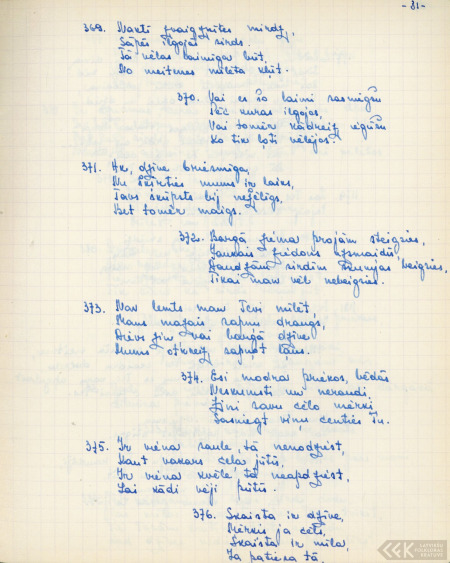 - 31 -
369. Naktī zvaigznītes mirdz,
Sāpēs ilgojas sirds.
Tā vēlas laimīga būt,
No meitenes mīlēta kļūt.
370. Vai es šo laimi sasniegšu
Pēc kuras ilgojos,
Vai tomēr kādreiz iegūšu
Ko tik ļoti vēlējos.
371. Ak, dzīve briesmīga,
Nu šķirties mums ir laiks,
Tavs skūpsts bij nežēlīgs,
Bet tomēr maigs.
372. Bargā ziema projām steigsies,
Jaukais ziedonis uzmaidīs,
Daudzām sirdīm bēdas beigsies,
Tikai man vēl nebeigsies.
373. Nav lemts man Tevi mīlēt,
Mans mazais sapņu draugs,
Dievs zin, vai bargā dzīve
Mums otrreiz sapņot ļaus.
374. Esi modra priekos, bēdās
Neskumsti un neraudi,
Zini savu cēlo mērķi,
Sasniegt viņu centies Tu.
375. Ir viena saule, tā nenodziest,
Kaut vakars ceļa jūtīs,
Ir viena kvēle tā neapdziest,
Lai kādi vēji pūtīs.
376. Skaista ir dzīve,
Mērķis ja cēls,
Skaista ir mīla,
Ja patiesa tā.
LATVIEŠU
FOLKLORAS
KRĀTUVE